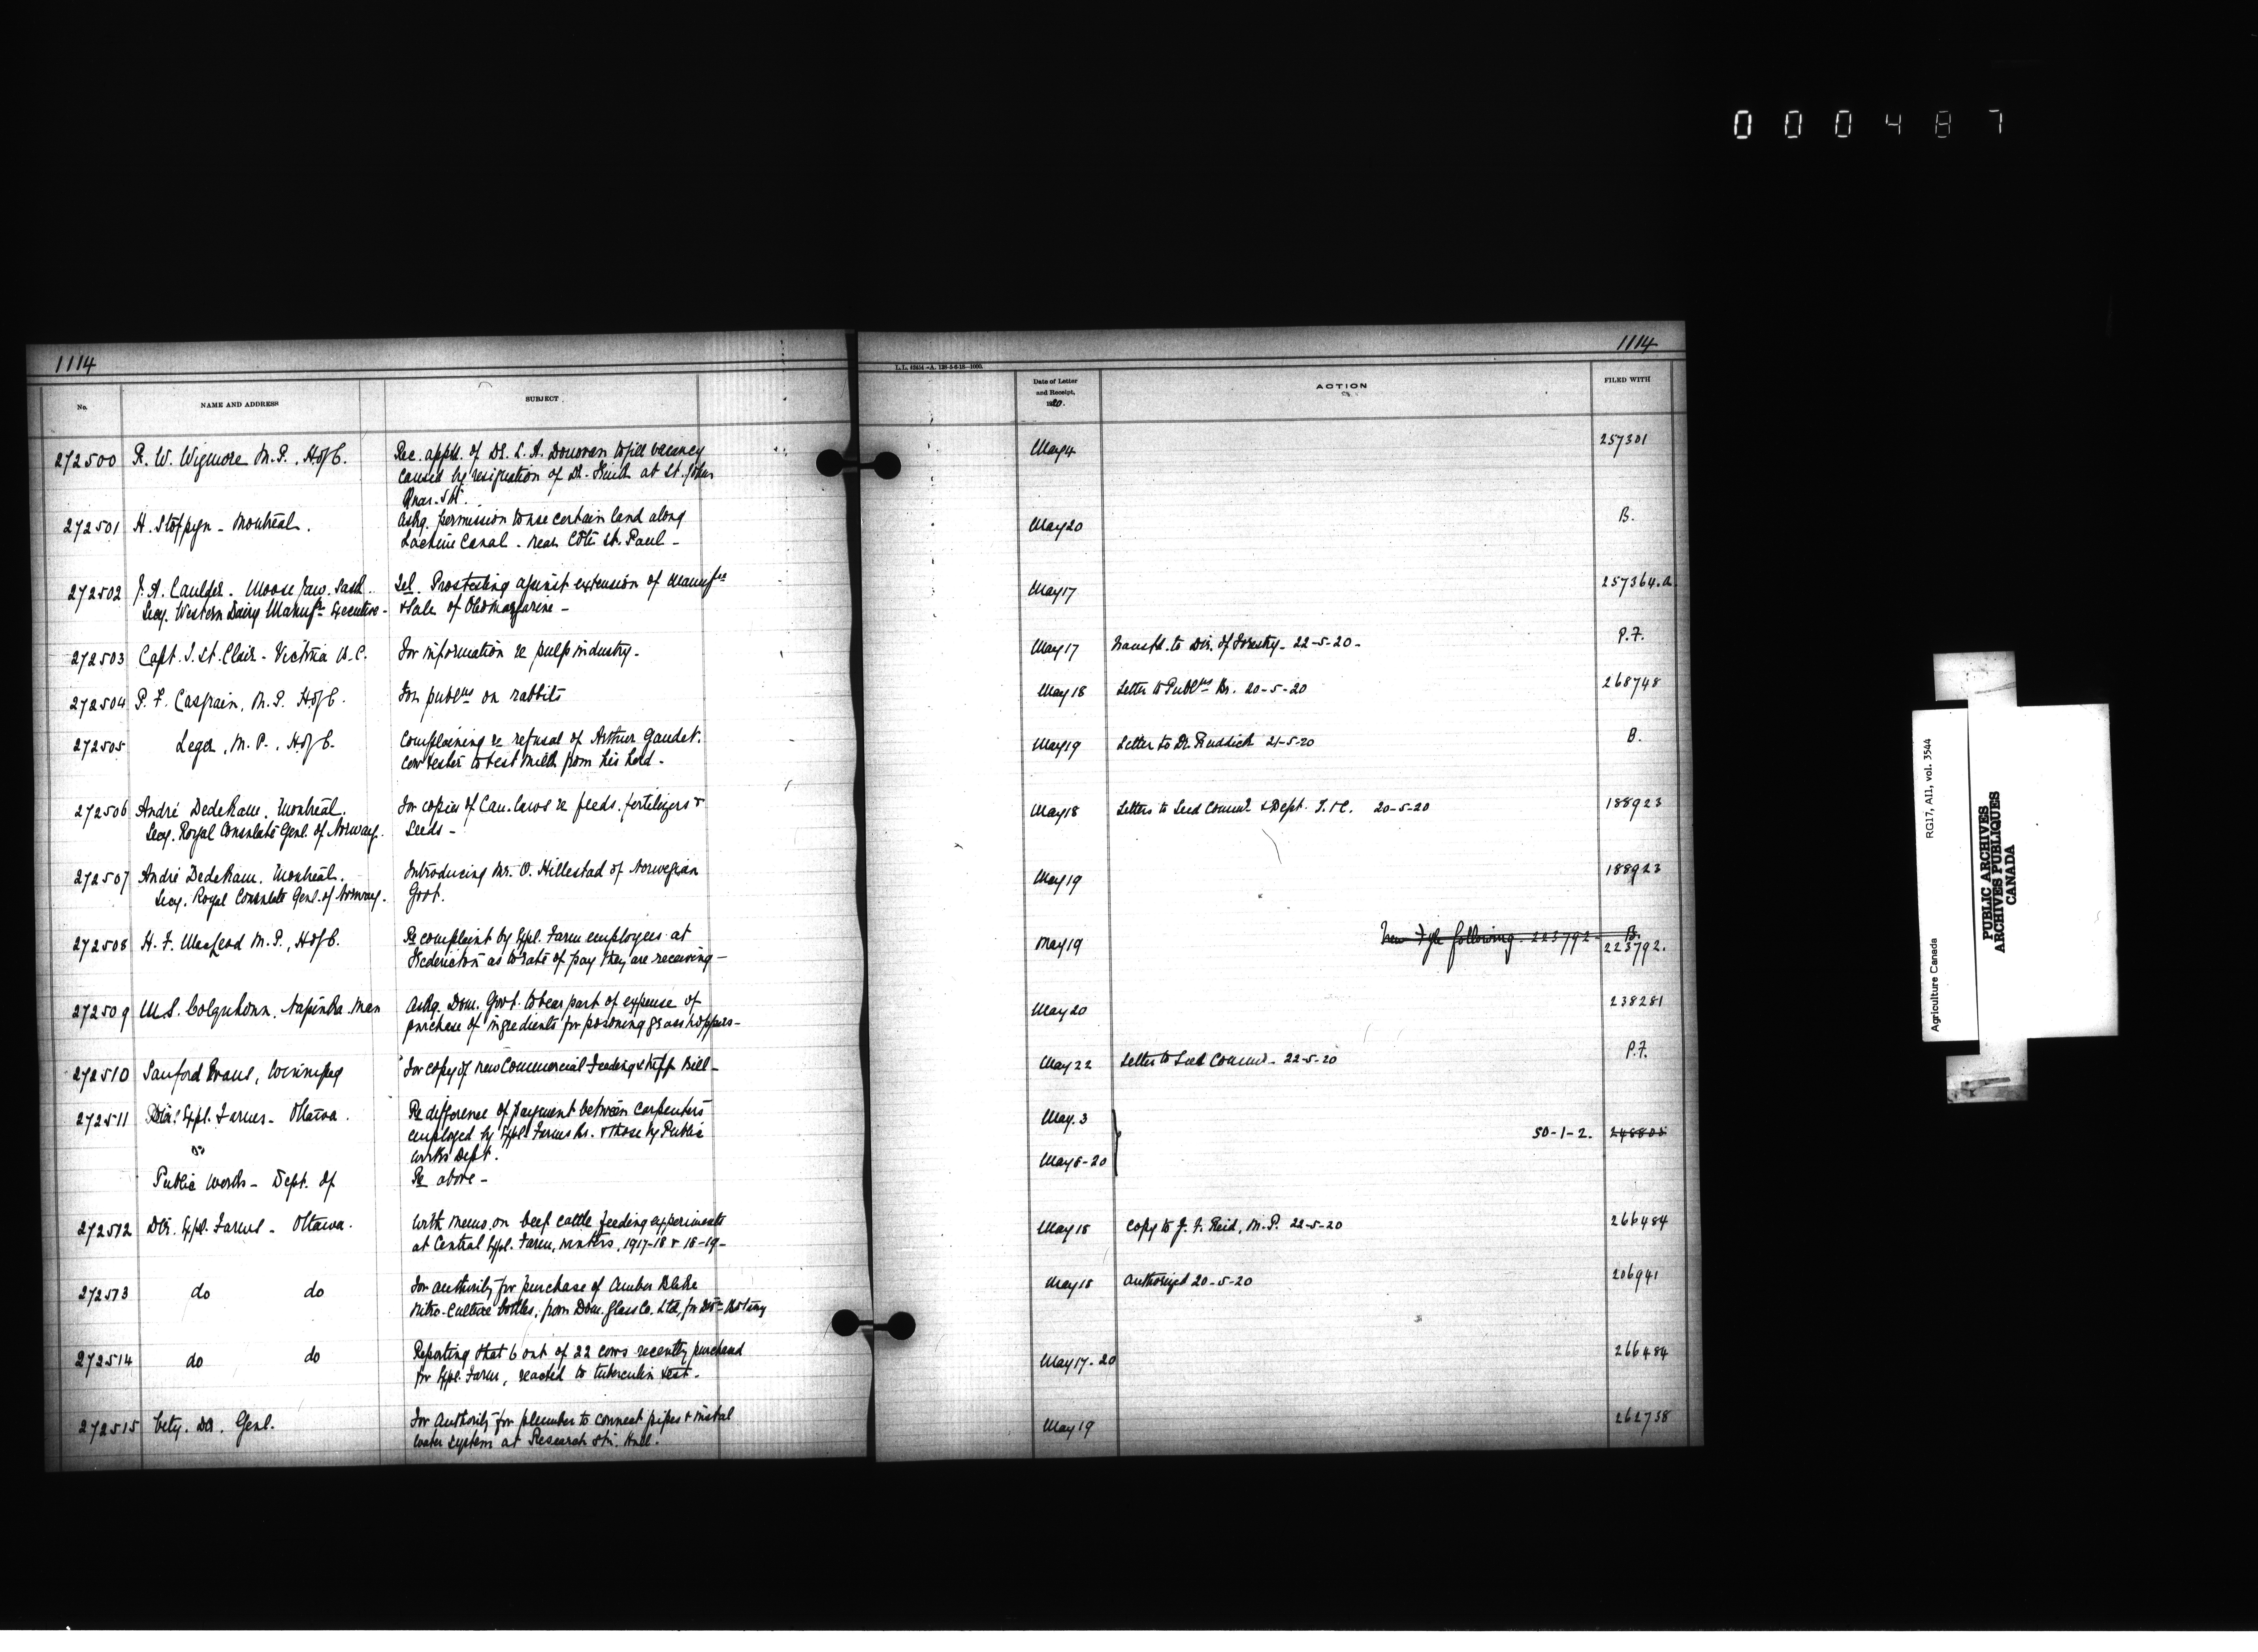 000487
1114
1114
L.L. 42414-A. 128-5-6-18-1000.
No.
NAME AND ADDRESS
SUBJECT
Date of Letter and Receipt, 1920.
ACTION
FILED WITH
272500 R. W. Wigmore M.P., H of C. Rec. appt. of Dr. L. A. Donovan to fill vacancy May 4 257301
caused by resignation of Dr. at St. John
Quar. Stn.
272501 H. Stoppyn - Montreal. Askg. permission to use certain land along May 20 B.
Lachine Canal - near Côte St. Paul -
272502 J. A. Caulder - Moose Jaw. Sask. Tel. Prostesting against extension of Manufre May 17 257364.a
Secy. Western Dairy Manufrs Executive - & Sale of Oleomargarine -
272503 Capt. J. St. Clair - Victoria B.C. For information re pulp industry - May 17 Transfd. to Dir. of Forestry - 22-5-20 - P.F.
272504 P. F. Casgrain, M.P. H of C. For publns on rabbits May 18 Letter to Publns Br. 20-5-20 268748
272505 Leger, M.P., H of C. Complaining re refusal of Arthur Gaudet. May 19 Letter to Dr. Ruddick 21-5-20 B.
Cow tester to test milk from his herd -
272506 André Dedekam, Montreal. For copies of Can. laws re feeds, fertilizers & May 18 Letters to Seed Commr. & Dept. T. & C. 20-5-20 188923
Secy. Royal Consulate Genl. of Norway. Seeds -
272507 André Dedekam, Montreal. Introducing Mr. O. Hillestad of Norwegian May 19 188923
Secy. Royal Consulate Genl. of Norway. Govt.
272508 H. F. MacLeod M.P., H of C. Re complaint by Expl. Farm employees at May 19 New Fyle following - 223792 - B.
Fredericton as to rate of pay they are receiving - 223792.
272509 M.S. Colquhoun, Napinka Man Askg. Dom. Govt. to bear part of expense of May 20 238281
purchase of ingredients for poisoning grasshoppers -
272510 Sanford Evans, Winnipeg For copy of new Commercial Feeding Stuffs Bill - May 22 Letter to Seed Commr - 22-5-20 P.F.
272511 Dir. Expl. Farms - Ottawa. Re difference of payment between carpenters May 3
employed by Expl. Farms Br. & those by Public 50-1-2.
Works Dept. May 6-20
Public Works - Dept. of Re above -
272512 Dir. Expl. Farms - Ottawa. With memo. on beef cattle feeding experiments May 18 Copy to J. F. Reid, M.P. 22-5-20 266484
at Central Expl. Farm, winters, 1917-18 & 18-19 -
272513 do do For authority for purchase of Amber Blake May 18 Authorized 20-5-20 206941
nitro-culture bottles, from Dom. Glass Co. Ltd, for Divn Botany
272514 do do Reporting that 6 out of 22 cows recently purchased May 17-20 266484
for Expl. Farm, reacted to tuberculin test -
272515 Vety. Dir. Genl. For Authority for plumber to connect pipes & instal May 19 262738
water system at Research Stn. Hull.
Agriculture Canada RG17, AII, vol. 3544
PUBLIC ARCHIVES
ARCHIVES PUBLIQUES
CANADA